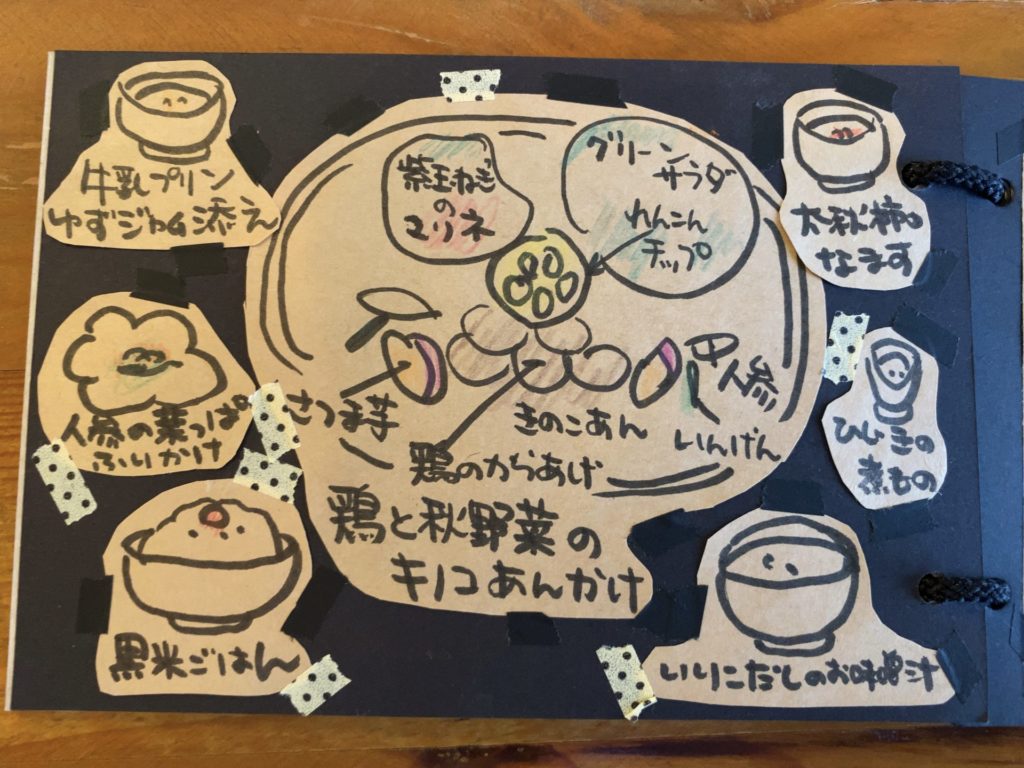 牛乳プリン
ゆずジャム添え
紫玉ねぎ
の
マリネ
グリーン
サラダ
れんこん
チップ
太秋柿の
なます
人参の葉っぱ
ふりかけ
さつま芋
きのこあん
人参
いんげん
鶏のからあげ
ひじきの
煮もの
鶏と秋野菜の
キノコあんかけ
黒米ごはん
いりこだしのお味噌汁